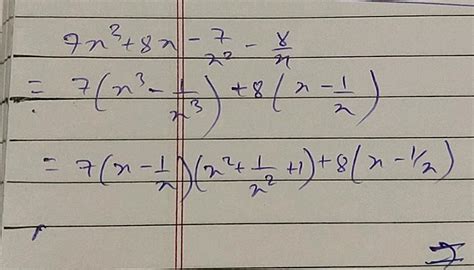 7x³+8x - 7/x² - 8/x
= 7(x³ - 1/x³) + 8(x - 1/x)
= 7(x - 1/x)(x² + 1/x² + 1) + 8(x - 1/x)